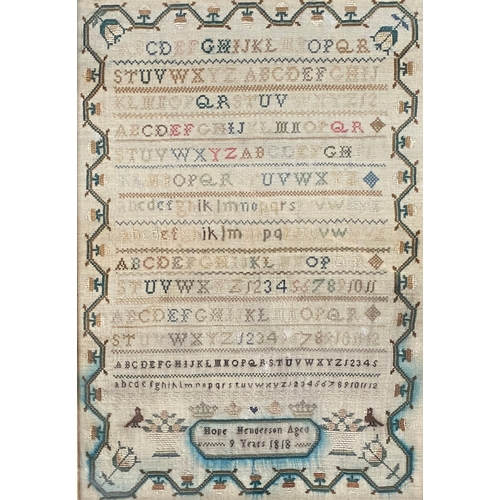 ABCDEFGHIJKLMNOPQR
STUVWXYZ ABCDEFGHIJ
KLMNOPQRSTUVWXYZ12
ABCDEFGHIJKLMNOPQR
STUVWXYZABCDEFGH
KLMNOPQR UVWXYZ
abcdefghiklmnopqrs vw
abcdef iklm pq vw
ABCDEFGHIJKLMNOPQR
STUVWXYZ1234567891011
ABCDEFGHIJKLMNOPQR
STUVWXYZ123456789101112
ABCDEFGHIJKLMNOPQRSTUVWXYZ12345
abcdefghiklmnopqrstuvwxyz123456789101112
Hope Henderson Aged
9 Years 1818